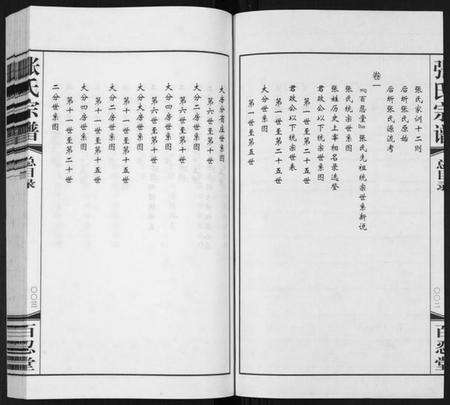 张氏宗谱
总目录
〇〇二
百忍堂
张氏家训十二则
后圻张氏原始
后圻张氏源流考
卷一
『百忍堂』张氏先祖统宗世系新说
张氏统宗世系图
张姓历史上宰相名录选登
君政公以下统宗世系图
第一世至第二十五世
君政公以下统宗世表
第一世至第二十五世
大分世系图
第一世至第五世
大房分首座世系图
第六世至第十世
大分二房世系图
第六世至第十世
大分六房世系图
第六世至第十世
大分一房世系图
第十一世至第十五世
大分二房世系图
第十一世至第十五世
二分世系图
第十一世至第二十世
张氏宗谱
总目录
〇〇三
百忍堂